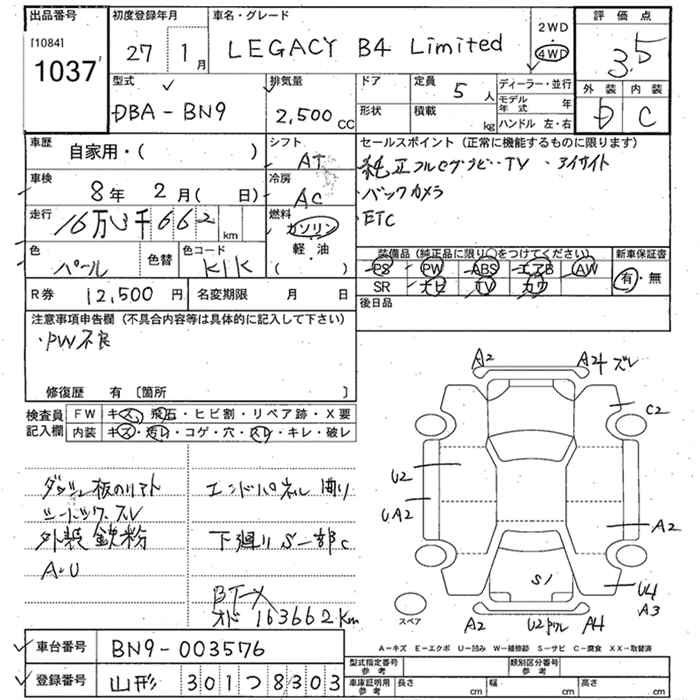 出品番号 初度登録年月 車名・グレード 2WD 評価点
[1084] 1037 27 1月 LEGACY B4 Limited ・ 4WD 3.5
型式 排気量 ドア 定員 5人 ディーラー・並行 外装 内装
DBA-BN9 2,500CC 形状 積載 kg モデル年式 年 D C
ハンドル 左・右
車歴 シフト セールスポイント(正常に機能するものに限ります)
自家用・( ) AT 純正フルセグナビ・TV ・アイサイト
車検 冷房 ・バックカメラ
8年 2月( 日) AC ・ETC
走行 燃料
16万3千662km ガソリン
色 色替 色コード 軽・油 装備品(純正品に限り○をつけてください) 新車保証書
パール K1K ・( ) PS PW ABS エアB AW 有・無
R券 12,500円 名変期限 月 日 SR ナビ TV カワ
後日品
注意事項申告欄(不具合内容等は具体的に記入して下さい)
・PW不良
修復歴 有〔箇所 〕
検査員記入欄 FW キズ・飛石・ヒビ割・リペア跡・X要
内装 キズ・汚レ・コゲ・穴・スレ・キレ・破レ
A2 A24 ズレ
C2
U2
UA2
A2
S1
U4
A3
スペア A2 U2 A4
エンドパネル 曲り
外装 鉄粉 下廻り S一部C
A・U
BT-X
オド 163662km
A−キズ E−エクボ U−凹み W−補修跡 S−サビ C−腐食 XX−取替済
車台番号 BN9-003576
登録番号 山形 301つ8303
型式指定番号 参考 類別区分番号 参考
車庫証明用 参考 長さ cm 幅 cm 高さ cm